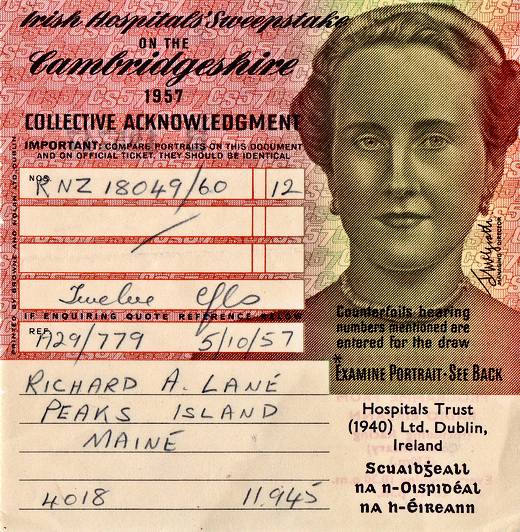 Irish Hospitals' Sweepstake
ON THE
Cambridgeshire
1957
COLLECTIVE ACKNOWLEDGMENT
IMPORTANT: COMPARE PORTRAITS ON THIS DOCUMENT
AND ON OFFICIAL TICKET, THEY SHOULD BE IDENTICAL
NOS. RNZ 18049/60 12
Twelve
IF ENQUIRING QUOTE REFERENCE BELOW
REF. A29/779 5/10/57
RICHARD A. LANE
PEAKS ISLAND
MAINE
4018 11.945
MANAGING DIRECTOR
Counterfoils bearing
numbers mentioned are
entered for the draw
*EXAMINE PORTRAIT · SEE BACK
Hospitals Trust
(1940) Ltd. Dublin,
Ireland
Scuaibġeall
na n-Oispidéal
na h-Éireann
PRINTED BY BROWNE AND NOLAN LTD.